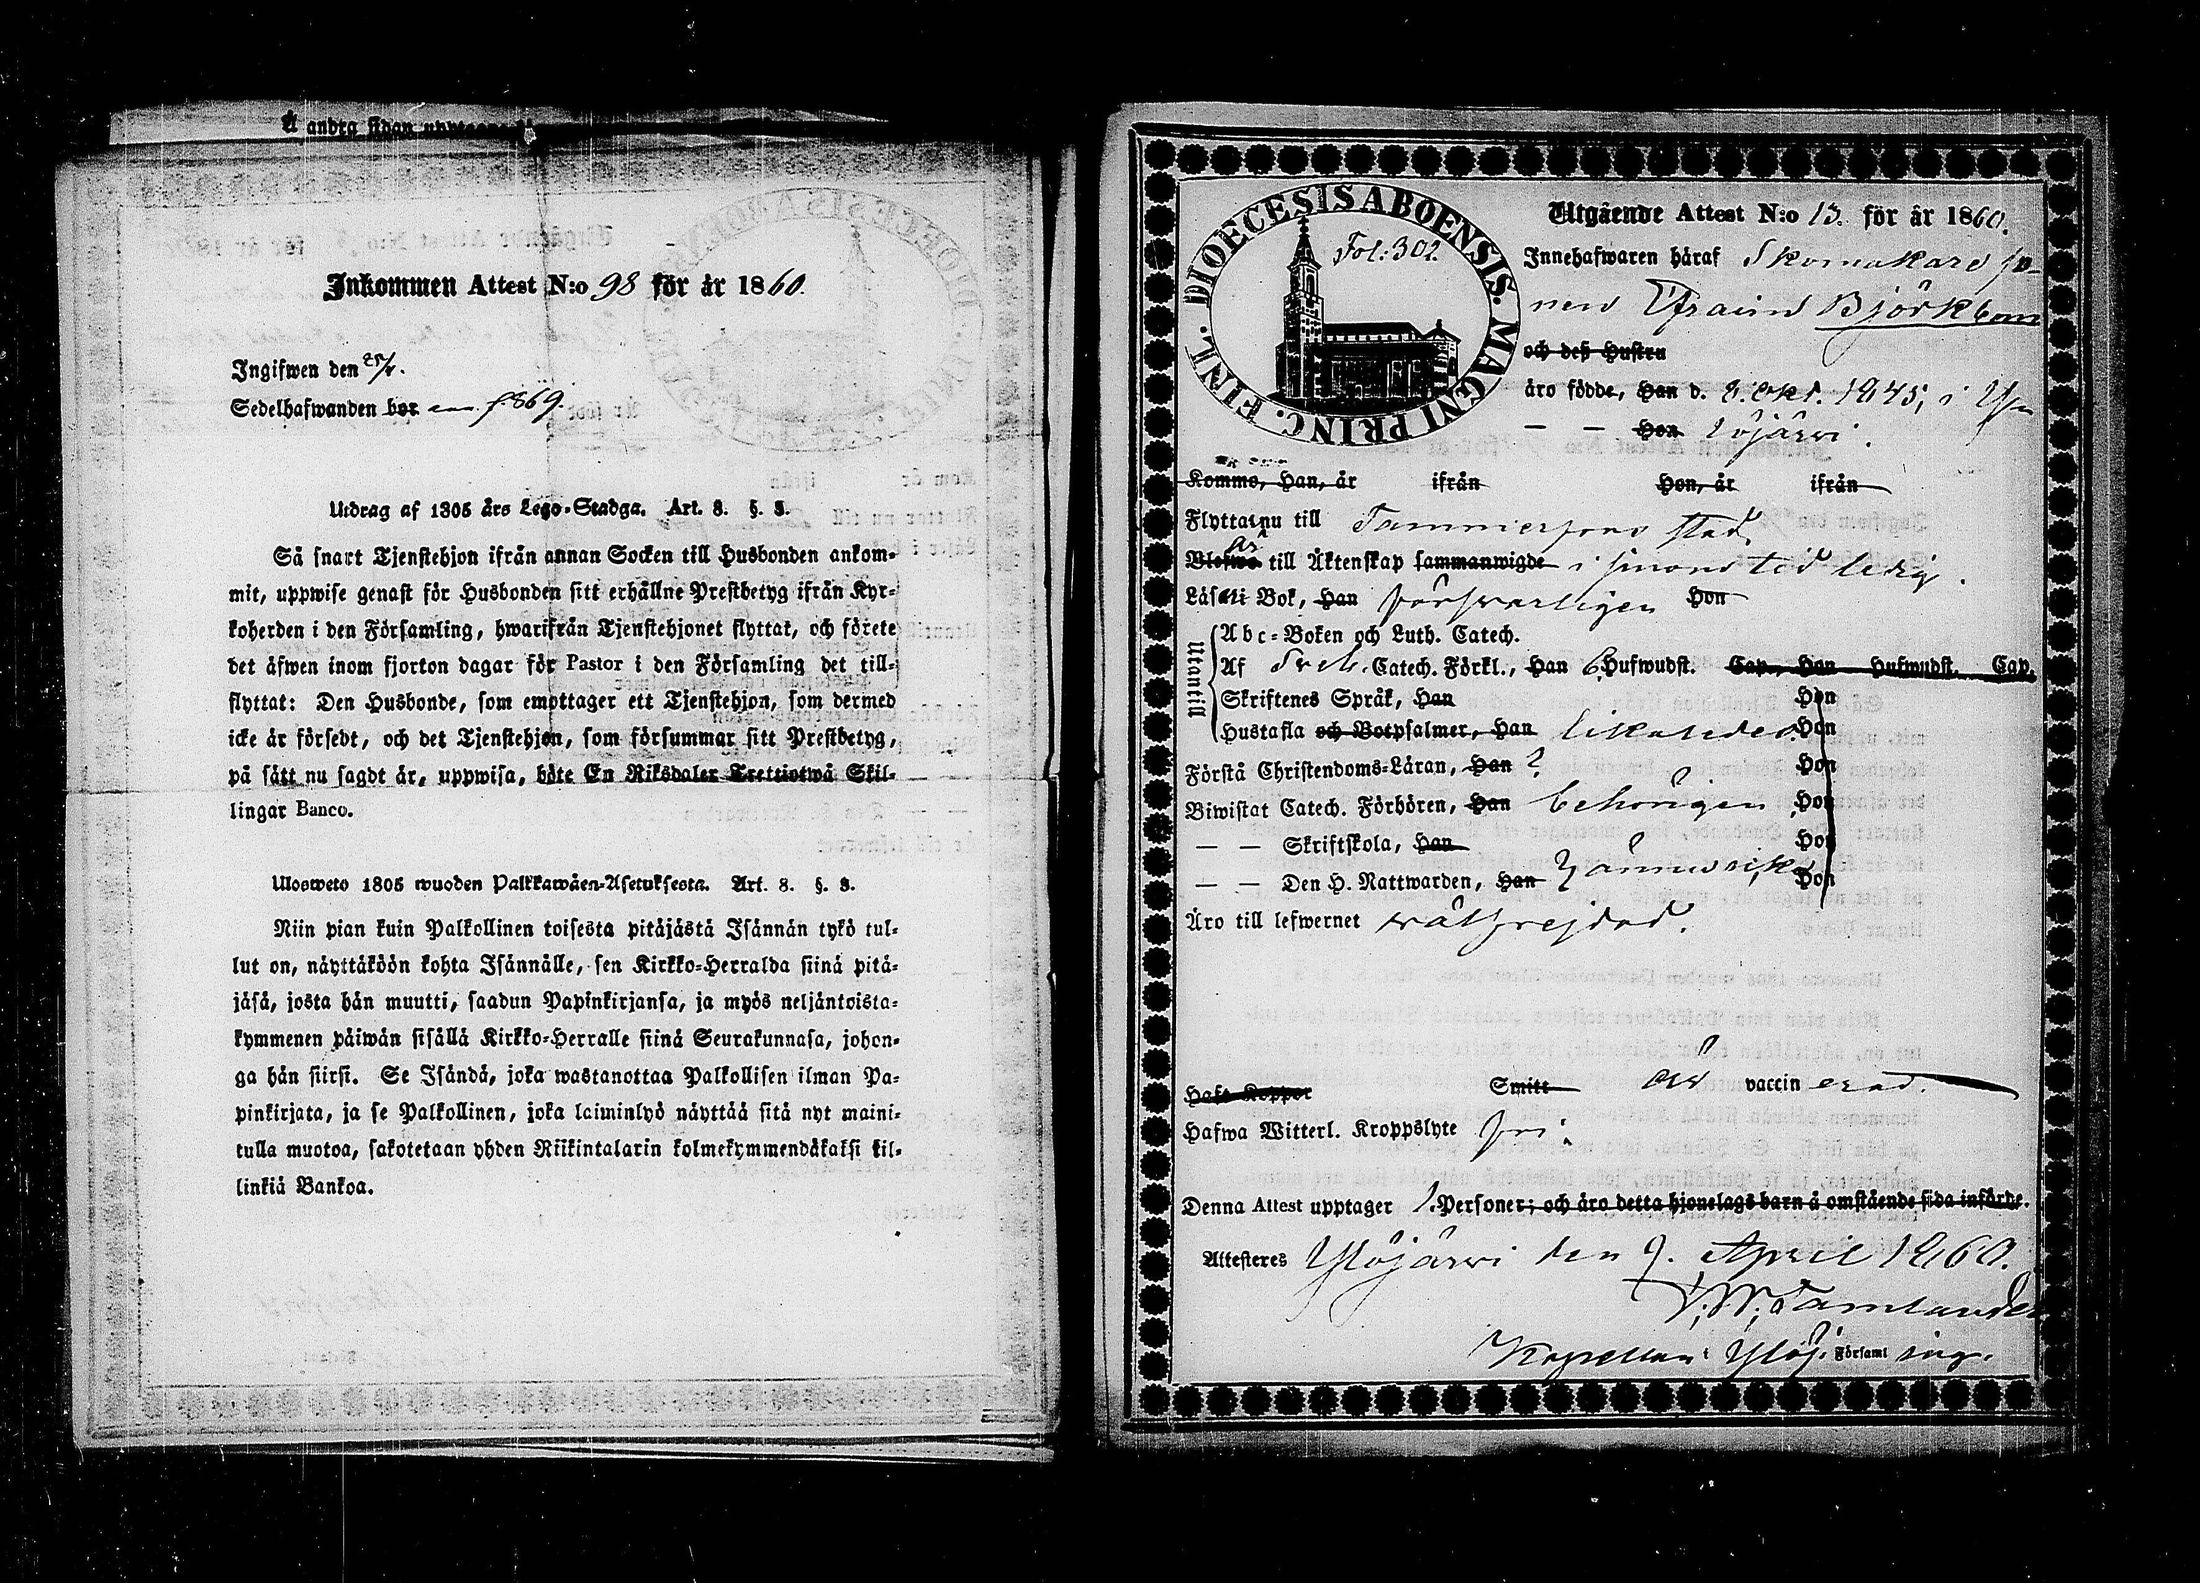 Å andra sidan
Inkommen Attest N:o 98 för år 1860.
Ingifwen den 25/4.
Sedelhafwanden bor
Utdrag af 1805 års Lego-Stadga. Art. 8. §. 3.
Så snart Tjenstehjon ifrån annan Socken till Husbonden ankom-
mit, uppwise genast för Husbonden sitt erhållne Prestbetyg ifrån Kyr-
koherden i den Församling, hwarifrån Tjenstehjonet flyttat, och förete
det äfwen inom fjorton dagar för Pastor i den Församling det till-
flyttat: Den Husbonde, som emottager ett Tjenstehjon, som dermed
icke är försedt, och det Tjenstehjon, som försummar sitt Prestbetyg,
på sätt nu sagdt är, uppwisa, böte En Riksdaler Trettiotwå Skil-
lingar Banco.
Ulosweto 1805 wuoden Palkkawäen-Asetuksesta. Art. 8. §. 3.
Niin pian kuin Palkollinen toisesta pitäjästä Isännän tykö tul-
lut on, näyttäköön kohta Isännälle, sen Kirkko-Herralda siinä pitä-
jäsä, josta hän muutti, saadun Papinkirjansa, ja myös neljäntoista-
kymmenen päiwän sisällä Kirkko-Herralle siinä Seurakunnasa, johon-
ga hän siirsi. Se Isändä, joka wastanottaa Palkollisen ilman Pa-
pinkirjata, ja se Palkollinen, joka laiminlyö näyttää sitä nyt maini-
tulla muotoa, sakotetaan yhden Riikintalarin kolmekymmendäkaksi kil-
linkiä Bankoa.
DIOECESIS ABOENSIS. MAGNI PRINC. FINL.
Fol: 302.
Utgående Attest N:o 13. för år 1860.
Innehafwaren häraf Skomakare so-
nen Efraim Björkbom
och dess Hustru
äro födde, Han d. 8. Okt. 1845, i Y-
— — Hon löjärwi.
Komme, Han, år ifrån Hon, år ifrån
Flyttar nu till Tammerfors stad.
Blefwo är till Äktenskap sammanwigde i sinom tid ledig.
Läsa i Bok, Han försvarligen Hon
Utantill
Abc-Boken och Luth. Catech.
Af Sveb. Catech. Förkl., Han 6 Hufwudst. Cap., Hon Hufwudst. Cap.
Skriftenes Språk, Han Hon
Hustafla och Botpsalmer, Han likaledes Hon
Förstå Christendoms-Läran, Han ? Hon
Biwistat Catech. Förhören, Han behörigen Hon
— — Skriftskola, Han Hon
— — Den H. Nattwarden, Han Hon
Äro till lefwernet wälfrejdad.
Haft Koppor Smitt är vaccinerad.
Hafwa Witterl. Kroppslyte fri.
Denna Attest upptager 1. Personer; och äro detta hjonelags barn å omstående sida införde.
Attesteres Ylöjärwi den 9. April 1860.
Kapellan i Ylöj. Församling.